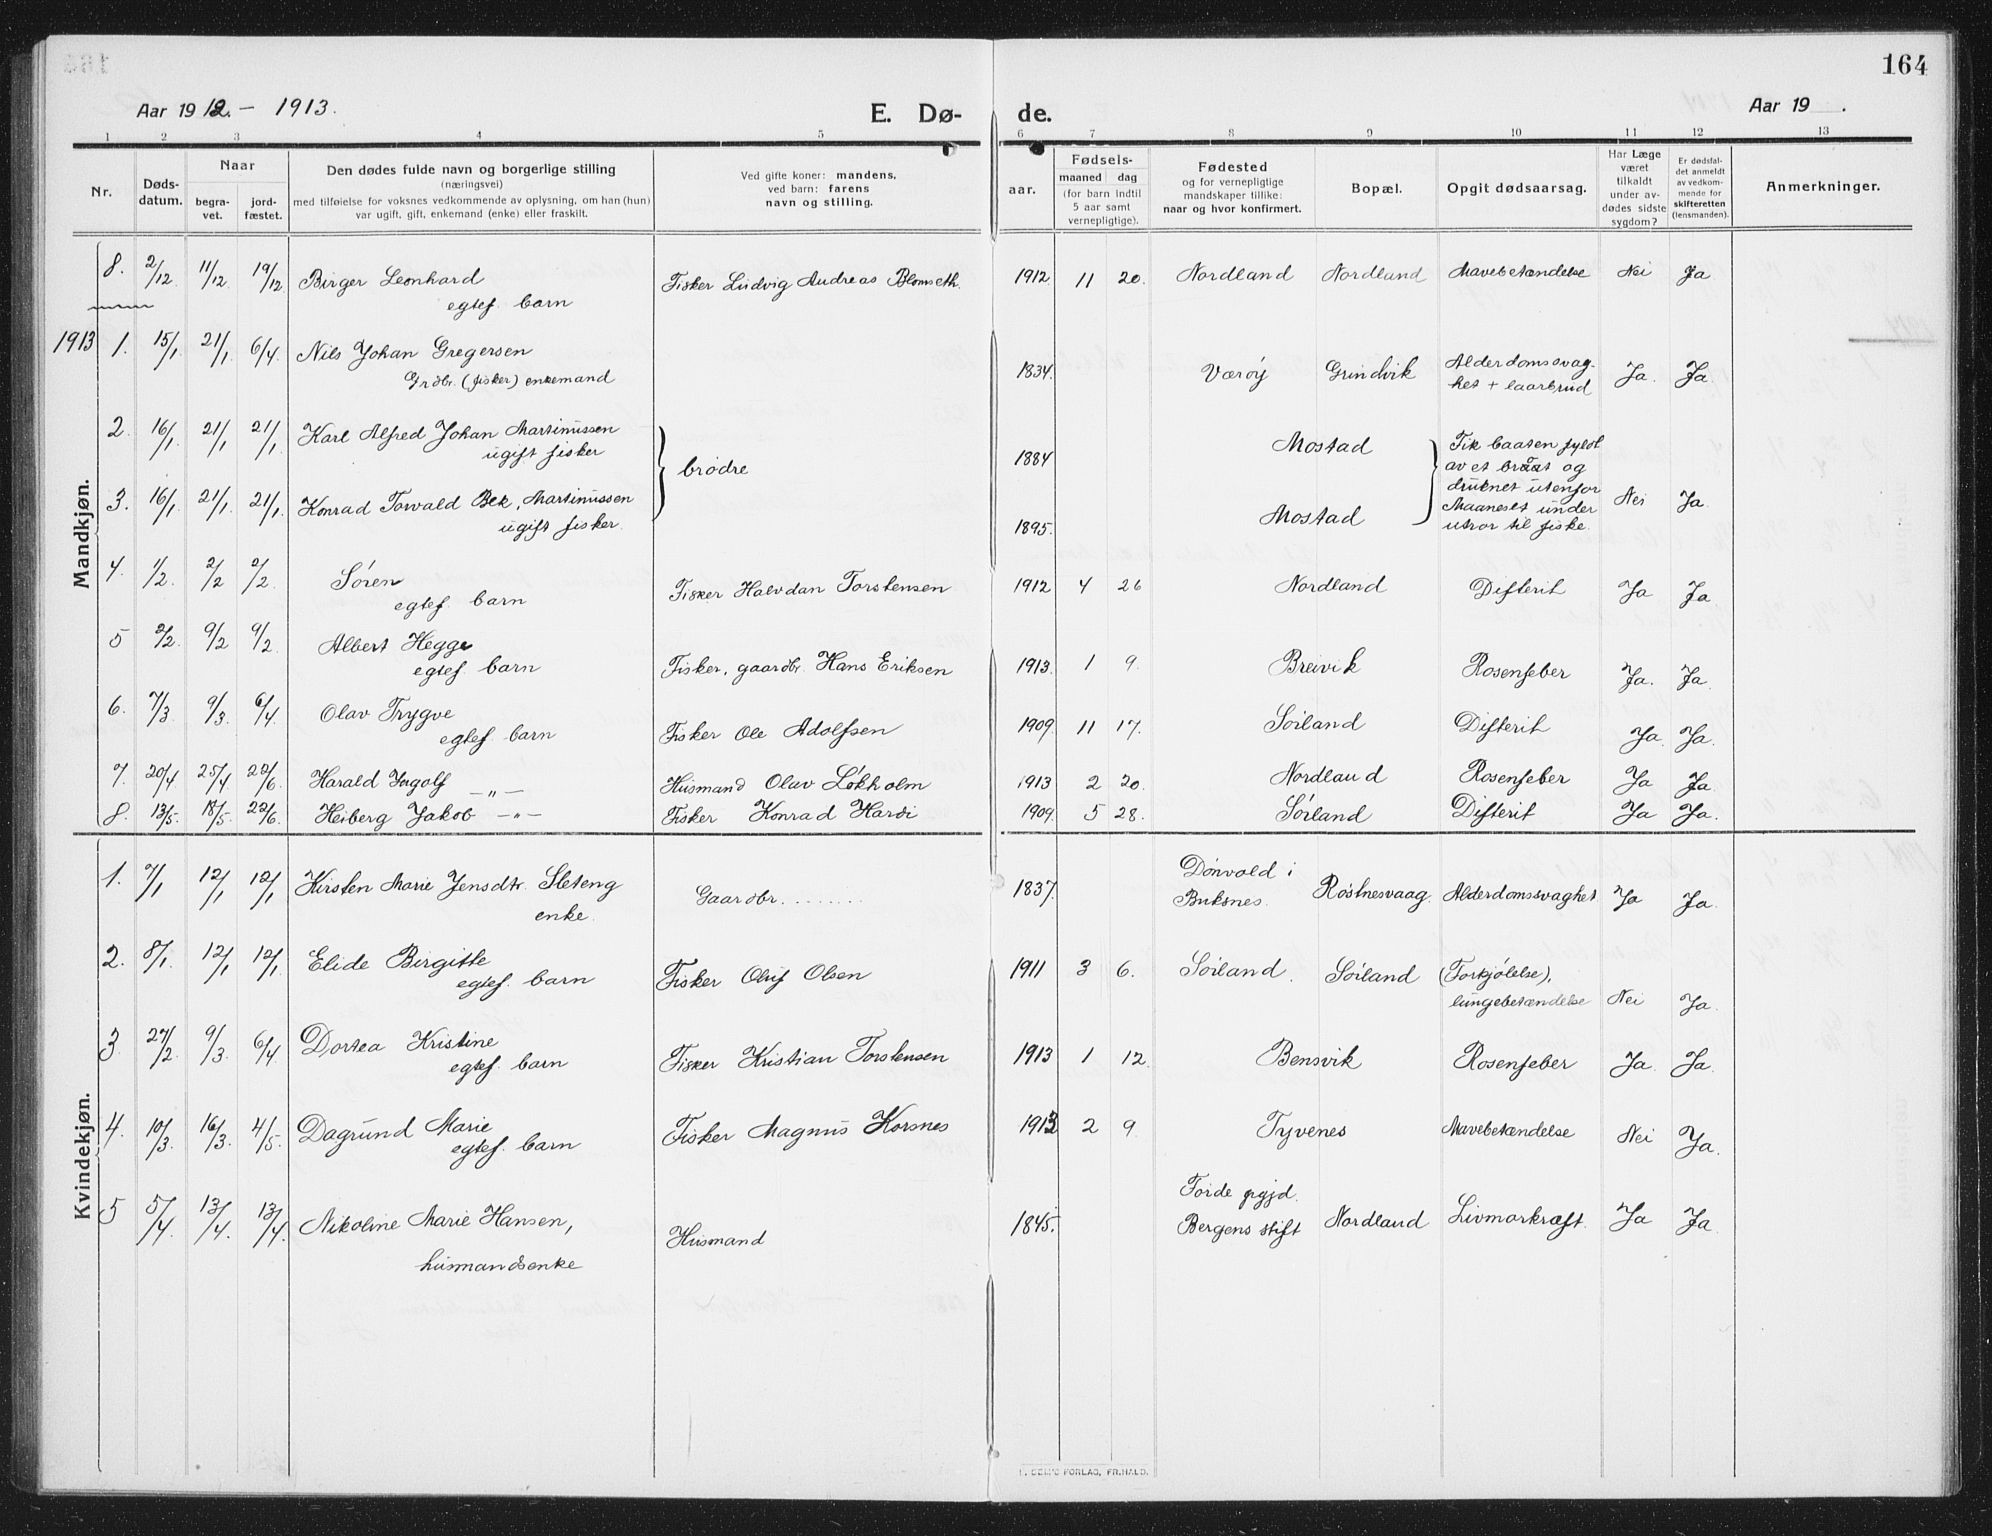 164
Aar 1912. – 1913.
E. Dø-
de.
Aar 19 .
1 2 3 4 5 6 7 8 9 10 11 12 13
Nr.
Døds-
datum.
Naar
begra-
vet.
jord-
fæstet.
Den dødes fulde navn og borgerlige stilling
(næringsvei)
med tilføielse for voksnes vedkommende av oplysning, om han (hun)
var ugift, gift, enkemand (enke) eller fraskilt.
Ved gifte koner: mandens,
ved barn: farens
navn og stilling.
aar.
Fødsels-
maaned dag
(for barn indtil
5 aar samt
vernepligtige).
Fødested
og for vernepligtige
mandskaper tillike:
naar og hvor konfirmert.
Bopæl.
Opgit dødsaarsag.
Har Læge
været
tilkaldt
under av-
dødes sidste
sygdom?
Er dødsfal-
det anmeldt
av vedkom-
mende for
skifteretten
(lensmanden).
Anmerkninger.
Mandkjøn.
8. 2/12 11/12 19/12 Birger Leonhard Fisker Ludvig Andreas Blomseth. 1912 11 20. Nordland Nordland Mavebetændelse Nei Ja
egtef. barn
1913 1. 15/1 21/1 6/4 Nils Johan Gregersen
Grdbr. (fisker) enkemand
1834. Værøy Grindvik Alderdomssvag-
het + laarbrud Ja. Ja.
2. 16/1 21/1 21/1 Karl Alfred Johan Martinussen
ugift fisker
brødre
1884 Mostad Fik baaten fyldt
av et braat og
druknet utenfor
Maaneset under
utror til fiske.
3. 16/1 21/1 21/1 Konrad Torvald Bek, Martinussen
ugift fisker.
1895. Mostad Nei Ja.
4. 1/2. 2/2 2/2. Søren
egtef. barn Fisker Halvdan Torstensen 1912 4 26 Nordland Difterit Ja Ja
5 2/2. 9/2 9/2. Albert Hegge
egtef. barn Fisker, gaardbr. Hans Eriksen 1913. 1 9. Breivik Rosenfeber Ja. Ja
6. 7/3 9/3. 6/4 Olav Trygve
egtef. barn Fisker Ole Adolfsen 1909. 11 17. Søiland Difterit Ja. Ja.
7. 20/4 25/4 22/6. Harald Ingolf –"– Husmand Olav Løkholm 1913 2 20. Nordland Rosenfeber Ja Ja.
8. 13/5. 18/5 22/6. Heiberg Jakob –"– Fisker Konrad Hardi 1909. 5 28. Søiland Difterit Ja Ja.
Kvindekjøn.
1. 7/1 12/1 12/1 Kirsten Marie Jensdtr. Sleteng
enke. Gaardbr. . . . . . . . . 1837. Dønvold i
Buksnes. Røstnesvaag. Alderdomssvaghet Ja Ja.
2. 8/1. 12/1 12/1 Elide Birgitte
egtef. barn Fisker Oluf Olsen 1911 3 6. Søiland. Søiland (Forkjølelse),
lungebetændelse Nei Ja.
3 27/2 9/3 6/4 Dortea Kristine
egtef. barn Fisker Kristian Torstensen 1913 1 12. Bensvik Rosenfeber Ja. Ja.
4. 10/3 16/3. 4/5. Dagrund Marie
egtef. barn Fisker Magnus Korsnes 1913 2 9. Tyvenes Mavebetændelse Nei Ja.
5 5/4 13/4. 13/4. Nikoline Marie Hansen,
husmandsenke Husmand 1845. Førde pgjd.
Bergens stift Nordland Livmorkræft. Ja Ja.
FORLAG, FR.HALD.